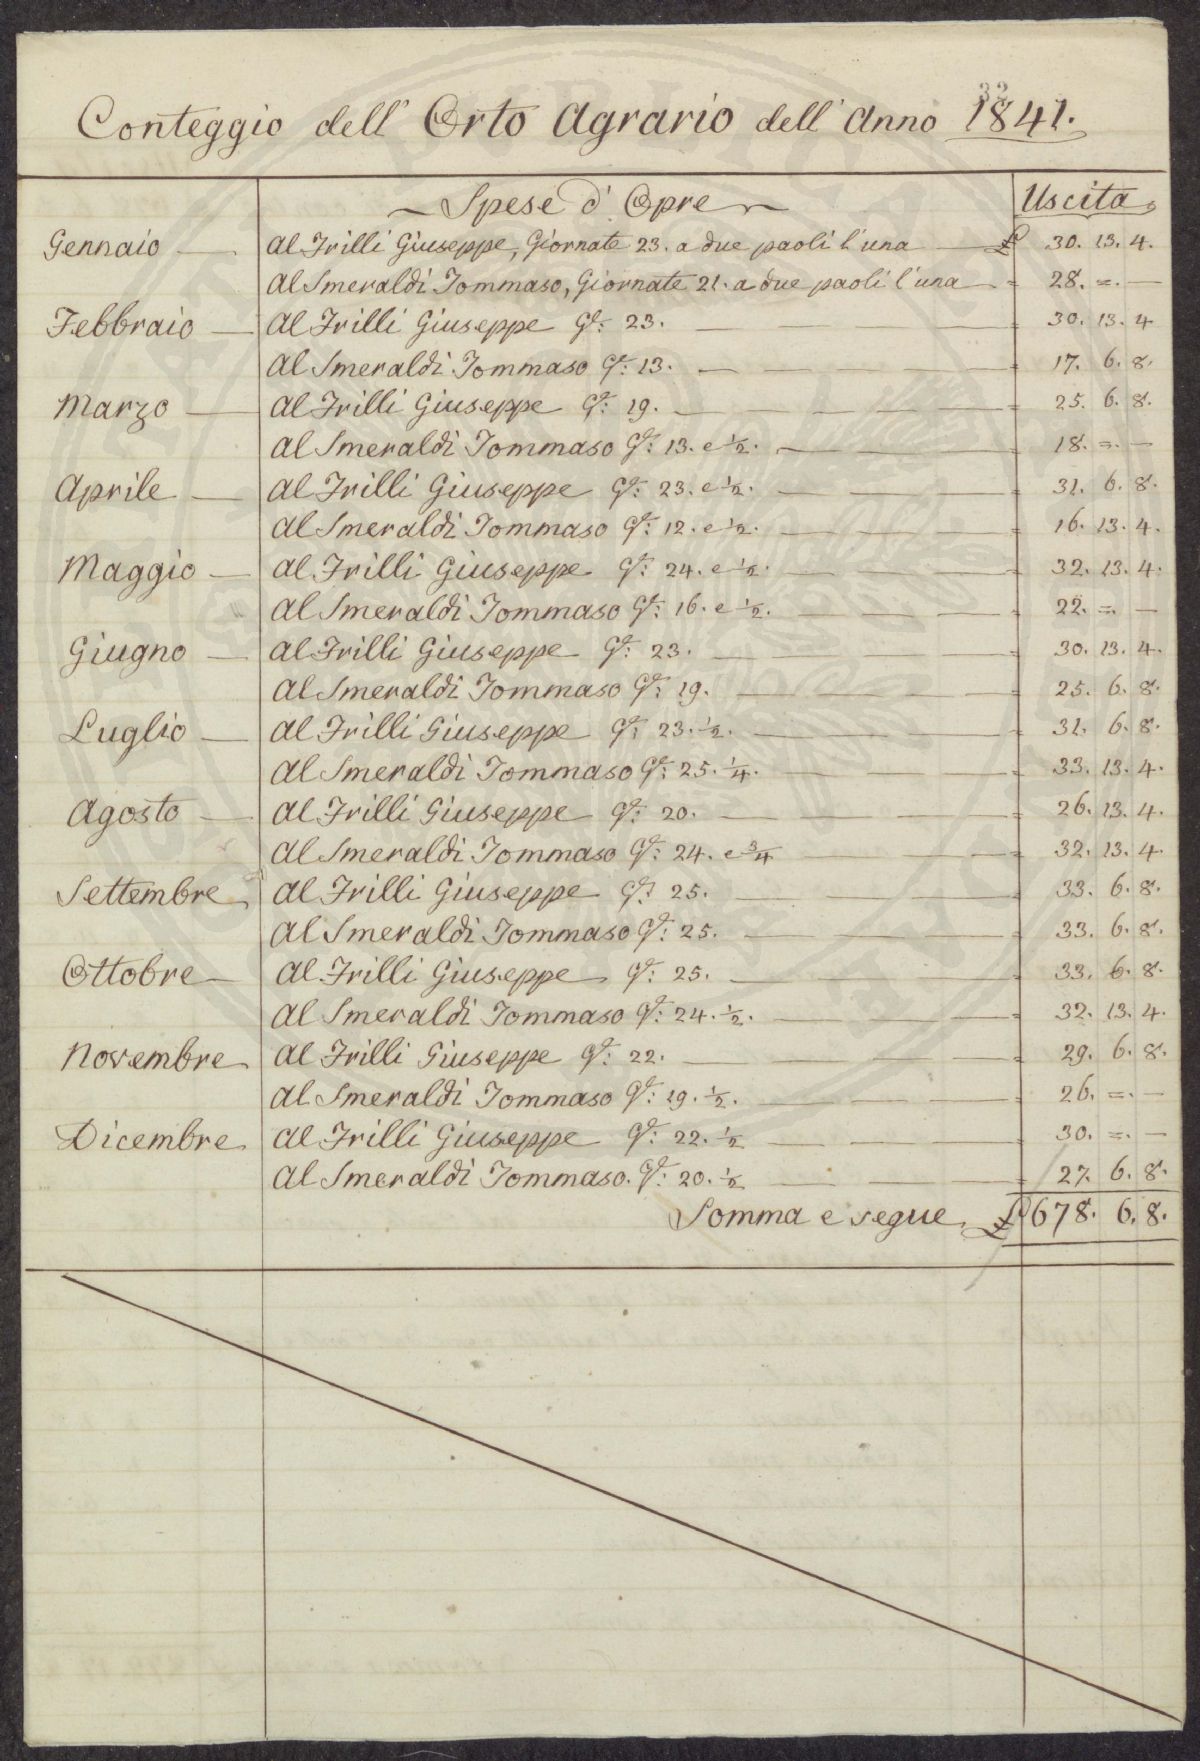 32
Conteggio dell' Orto Agrario dell' Anno 1841.
Spese d' Opre Uscita
Gennaio Al Frilli Giuseppe, Giornate 23. a due paoli l'una £ 30. 13. 4.
Al Smeraldi Tommaso, Giornate 21. a due paoli l'una = 28. =. —
Febbraio Al Frilli Giuseppe Gte: 23. = 30. 13. 4
Al Smeraldi Tommaso Gte: 13. = 17. 6. 8.
Marzo Al Frilli Giuseppe Gte: 19. = 25. 6. 8.
Al Smeraldi Tommaso Gte: 13. e 1/2. = 18. =. —
Aprile Al Frilli Giuseppe Gte: 23. e 1/2. = 31. 6. 8.
Al Smeraldi Tommaso Gte: 12. e 1/2. = 16. 13. 4.
Maggio Al Frilli Giuseppe Gte: 24. e 1/2. = 32. 13. 4.
Al Smeraldi Tommaso Gte: 16. e 1/2. = 22. =. —
Giugno Al Frilli Giuseppe Gte: 23. = 30. 13. 4.
Al Smeraldi Tommaso Gte: 19. = 25. 6. 8.
Luglio Al Frilli Giuseppe Gte: 23. 1/2. = 31. 6. 8.
Al Smeraldi Tommaso Gte: 25. 1/4. = 33. 13. 4.
Agosto Al Frilli Giuseppe Gte: 20. = 26. 13. 4.
Al Smeraldi Tommaso Gte: 24. e 3/4 = 32. 13. 4.
Settembre Al Frilli Giuseppe Gte: 25. = 33. 6. 8.
Al Smeraldi Tommaso Gte: 25. = 33. 6. 8.
Ottobre Al Frilli Giuseppe Gte: 25. = 33. 6. 8.
Al Smeraldi Tommaso Gte: 24. 1/2. = 32. 13. 4.
Novembre Al Frilli Giuseppe Gte: 22. = 29. 6. 8.
Al Smeraldi Tommaso Gte: 19. 1/2. = 26. =. —
Dicembre Al Frilli Giuseppe Gte: 22. 1/2 = 30. =. —
Al Smeraldi Tommaso. Gte: 20. 1/2 = 27. 6. 8.
Somma e segue £ 678. 6. 8.